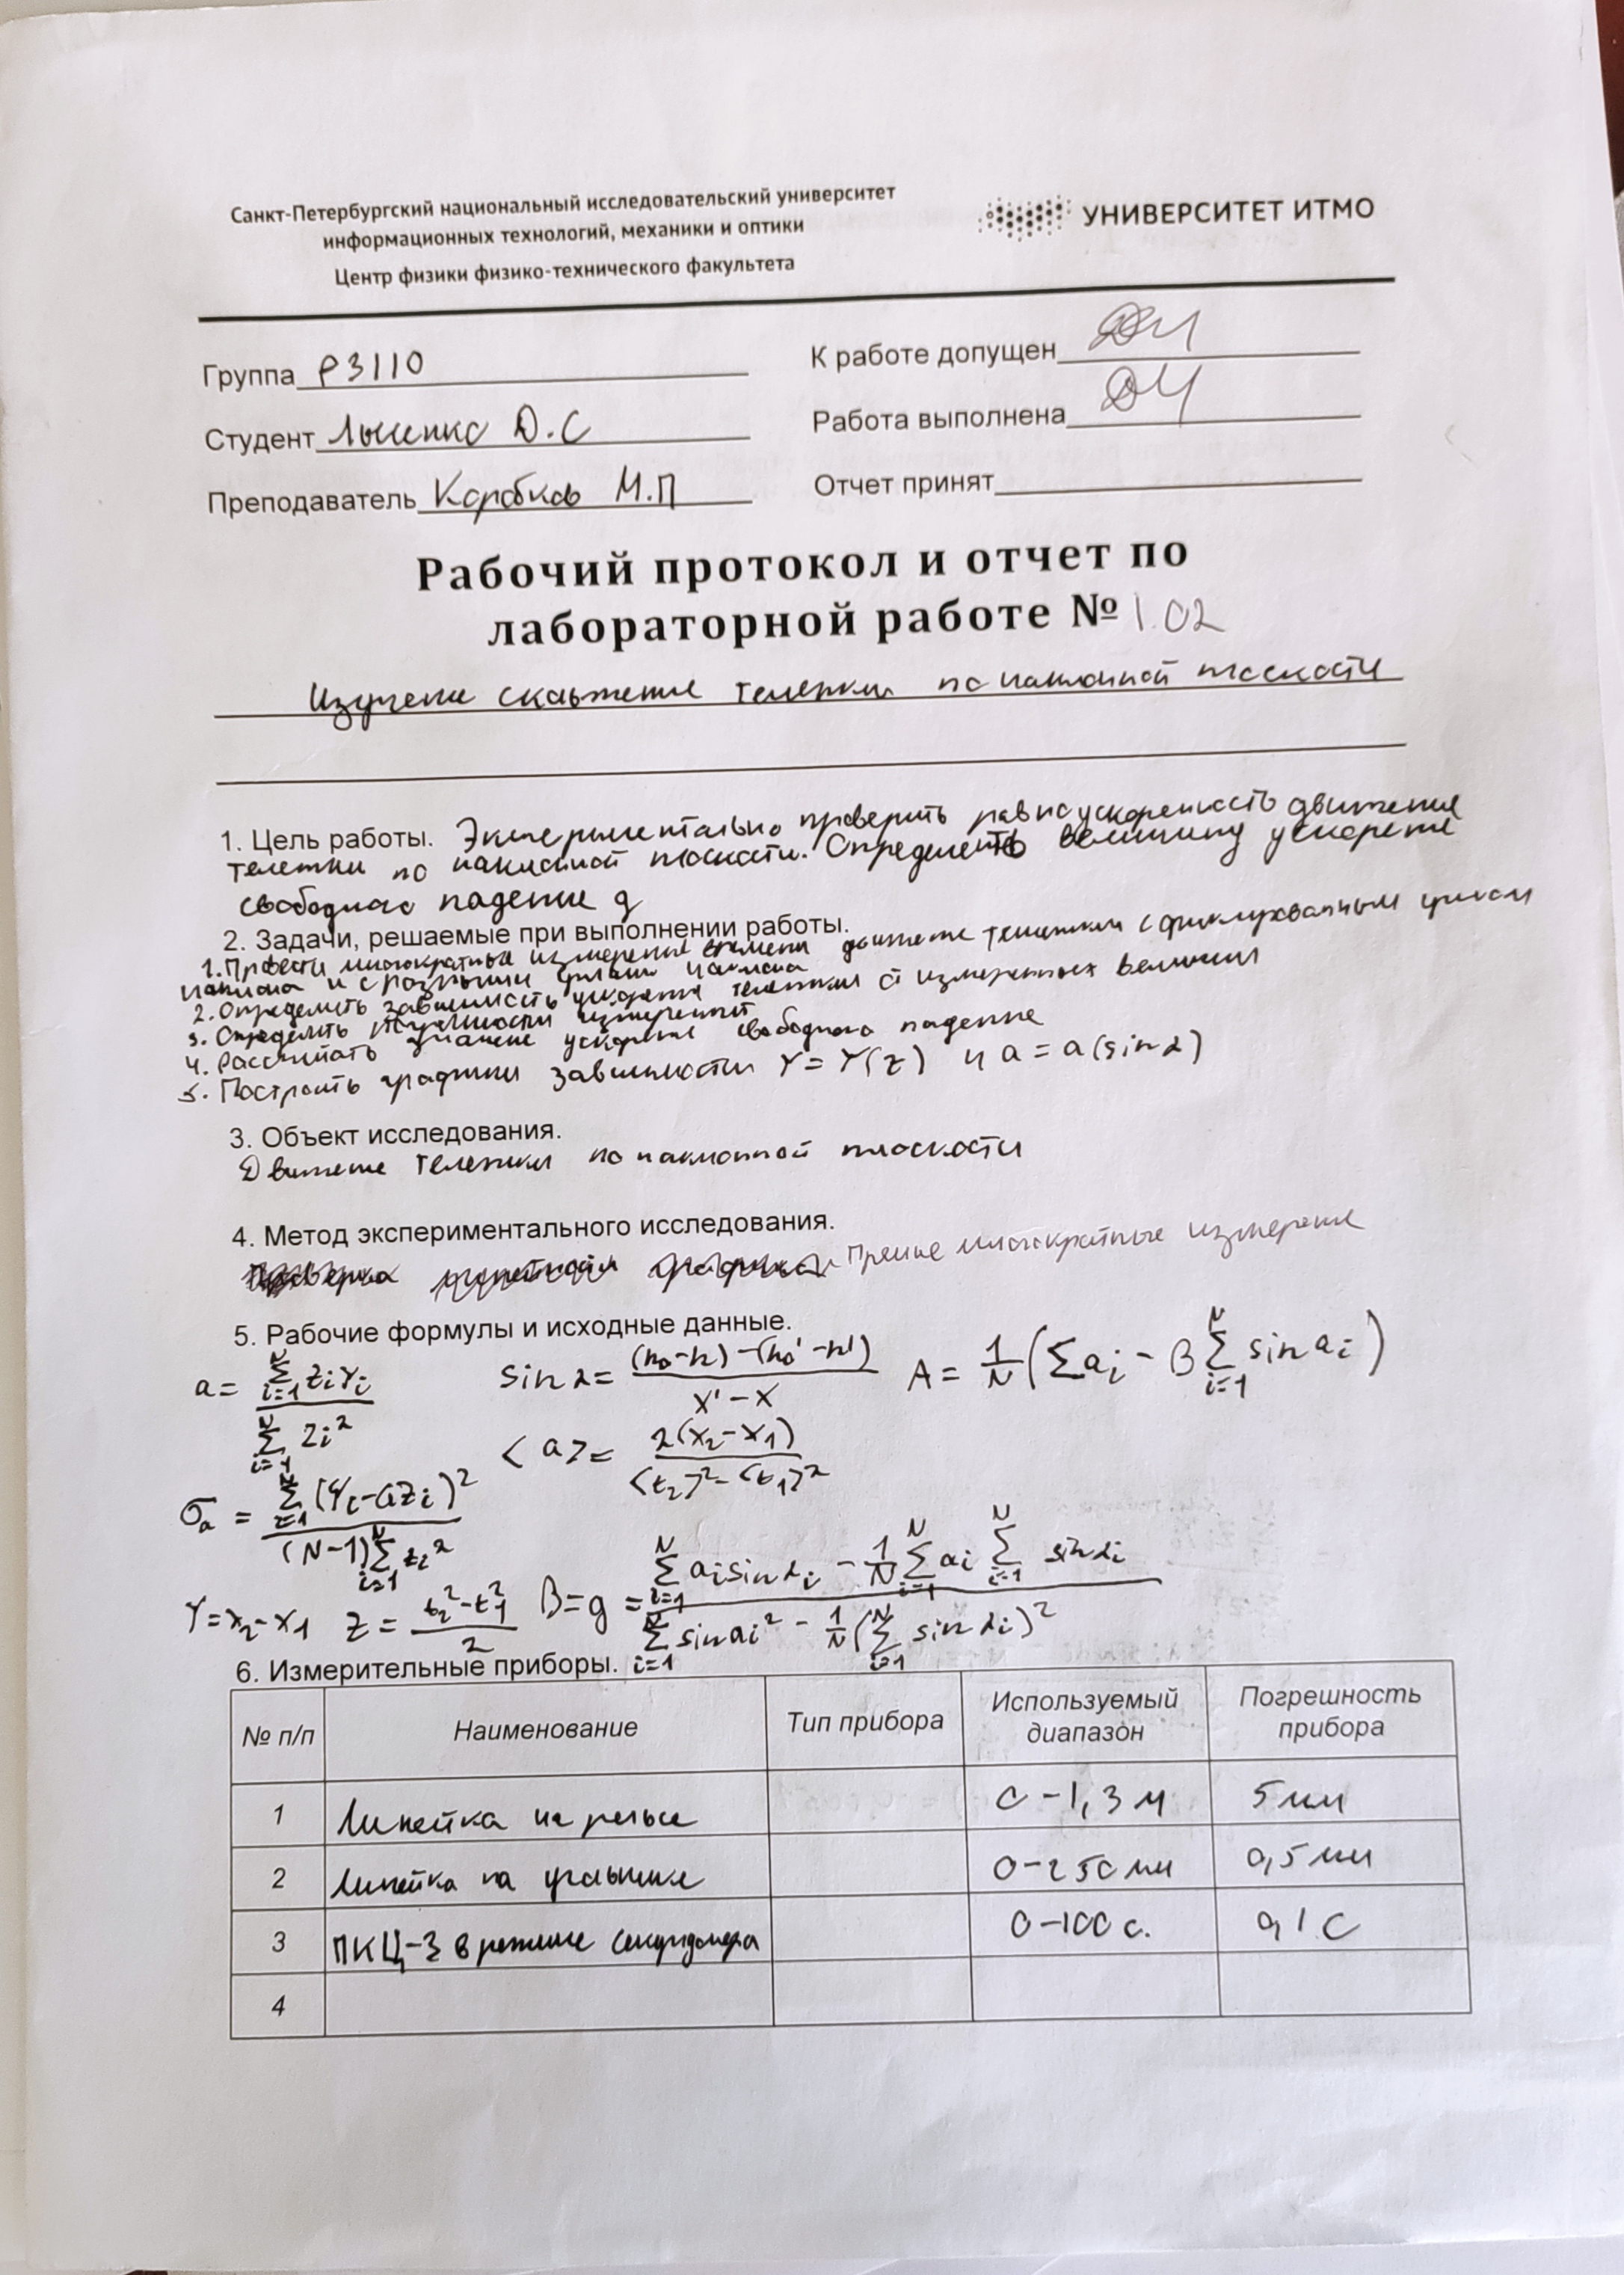 Санкт-Петербургский национальный исследовательский университет
информационных технологий, механики и оптики
Центр физики физико-технического факультета
УНИВЕРСИТЕТ ИТМО
Группа P3110
К работе допущен
Студент Д.С
Работа выполнена
Преподаватель Коробков М.П
Отчет принят
Рабочий протокол и отчет по
лабораторной работе № 1.02
Изучение скольжение тележки по наклонной плоскости
1. Цель работы. Экспериментально проверить равноускоренность движения
тележки по наклонной плоскости. Определить величину ускорение
свободного падение g
2. Задачи, решаемые при выполнении работы.
1. Провести многократные измерение времени движение тележки с фиксированным углом
наклона и с разными углами наклона
2. Определить зависимость ускорения тележки от измеренных величин
3. Определить измерений
4. Рассчитать значение ускорение свободного падение
5. Построить графики зависимости Y = Y(z) и a = a(sin α)
3. Объект исследования.
Движение тележки по наклонной плоскости
4. Метод экспериментального исследования.
Прямые многократные измерение
5. Рабочие формулы и исходные данные.
a = Σ_{i=1}^{N} ZiYi / Σ_{i=1}^{N} Zi²
sin α = (h₀-h)-(h₀'-h') / x'-x
A = 1/N (Σai - B Σ_{i=1}^{N} sin ai)
<a> = 2(x₂-x₁) / <t₂>²-<t₁>²
σa = Σ_{i=1}^{N} (Yi-aZi)² / (N-1) Σ_{i=1}^{N} zi²
Y = x₂-x₁ Z = t₂²-t₁² / 2 B = g = Σ_{i=1}^{N} ai sin αi - 1/N Σ_{i=1}^{N} ai Σ_{i=1}^{N} sin αi / Σ_{i=1}^{N} sin ai² - 1/N (Σ_{i=1}^{N} sin αi)²
6. Измерительные приборы.
№ п/п Наименование Тип прибора Используемый диапазон Погрешность прибора
1 Линейка на рельсе 0-1,3 м 5 мм
2 Линейка на угольнике 0-250 мм 0,5 мм
3 ПКЦ-3 в режиме секундомера 0-100 с. 0,1 с
4